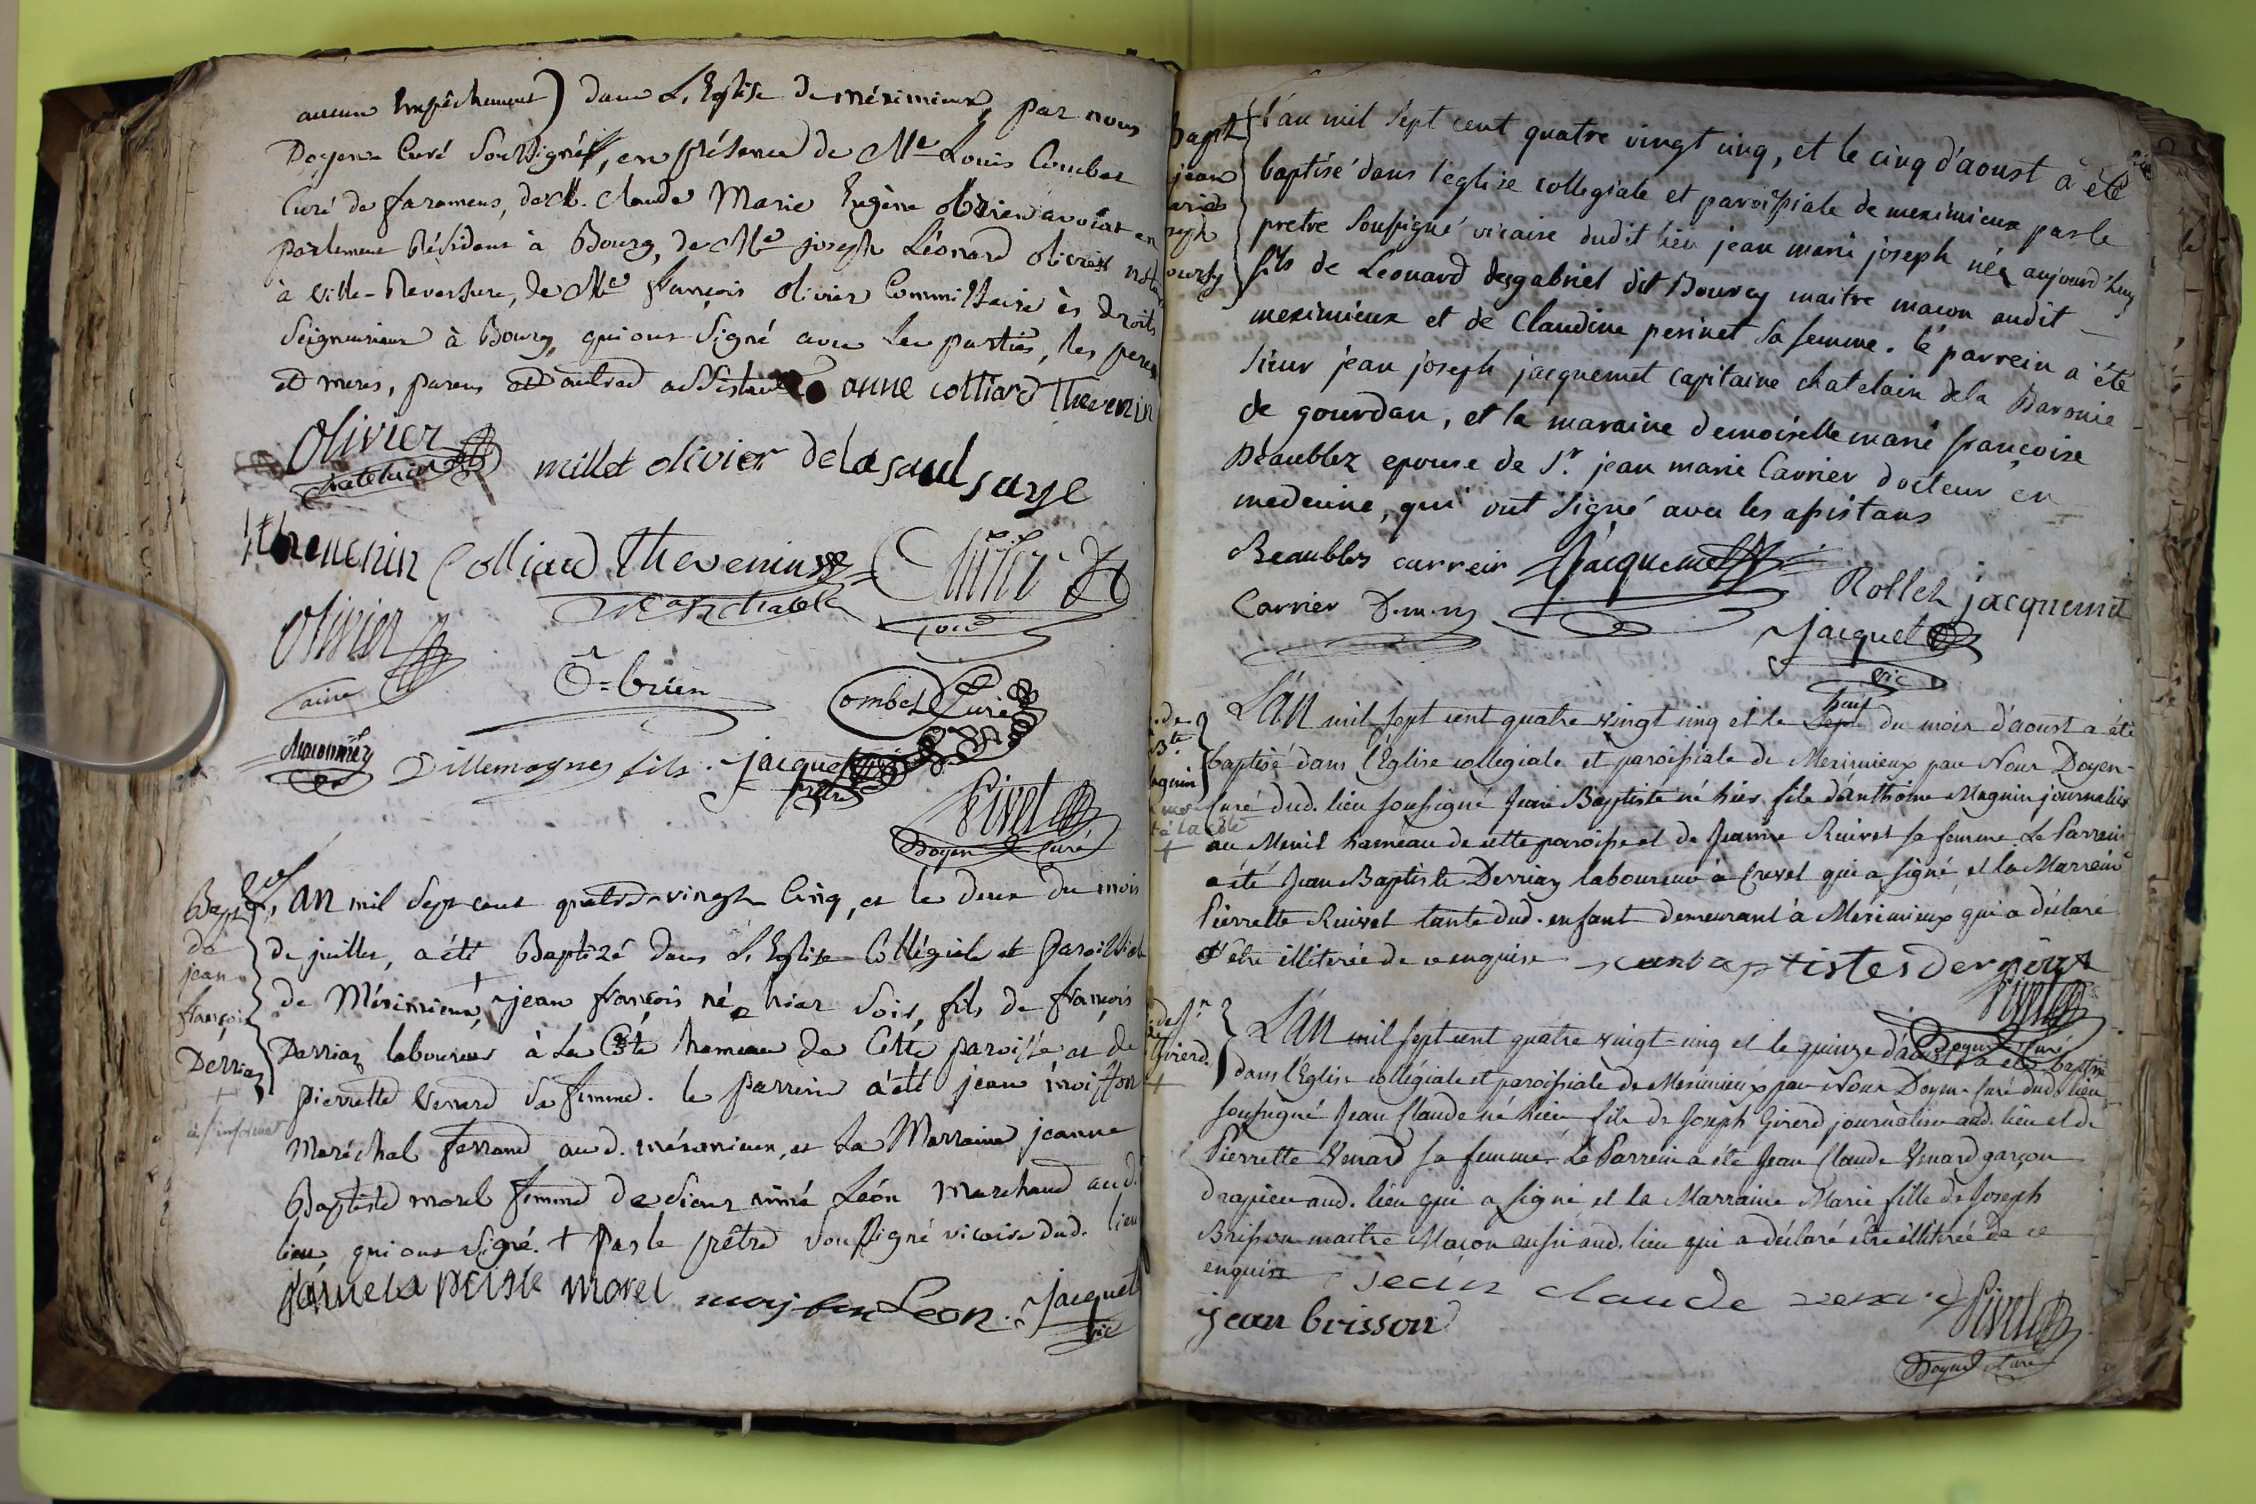 aucun Empêchement) dans L'Eglise de mérimieux, par nous
Doyen Curé soussigné, en présence de Me Louis Combet
Curé de faramens, de M. Claude Marie Eugène obrien avocat en
parlement Résident à Bourg, de Me joseph Léonard olivier
à ville-Reversure, de Me françois olivier Commissaire ès droits
Seigneuriaux à Bourg, qui ont signé avec les parties, les peres
et meres, parens et autres assistants anne colliard Thevenin
olivier
chatelain
millet olivier de la saulsaye
Thevenin Colliard Thevenin
olivier
ainé
O=brien
Combet Curé
Dillemagnes fils. jacquet
prêtre
Rivet
Doyen Curé
Bapt.
de
jean
françois
Derriaz
L'an mil sept cent quatre-vingt Cinq, et le deux du mois
de juillet, a été Baptizé dans L'Eglise Collégiale et paroissiale
de Mérimieux, + jean françois né hier soir, fils de françois
Derriaz laboureur à La Côte hameau de Cette paroisse et de
pierrette Venard sa femme. le parrein a été jean
Maréchal ferrand aud. mérimieux, et La Marraine jeanne
Baptiste morel femme de sieur aimé Léon marchand aud.
lieu, qui ont signé. + par le prêtre soussigné vicaire dud. lieu
morel Leon. Jacquet
vic
bapt
jean
marie
joseph
bourcy
l'an mil sept cent quatre vingt cinq, et le cinq d'aoust a été
baptisé dans l'eglise collegiale et paroissiale de meximieux par le
pretre soussigné vicaire dudit lieu jean marie joseph né aujourd'huy
fils de Leonard desgabriel dit Bourcy maitre macon audit
meximieux et de Claudine perinet sa femme. le parrein a été
sieur jean joseph jacquemet capitaine chatelain de la Baronie
de gourdan, et la maraine demoiselle marie françoise
Beaublez epouse de Sr. jean marie Carrier docteur en
medecine, qui ont signé avec les assistans
Beaublez carreir Jacquemet
Carrier D.m.m Rollet jacquemet
Jacquet
vic
huit
L'AN mil sept cent quatre vingt cinq et le sept du mois d'aoust a été
baptisé dans l'Eglise collegiale et paroissiale de Merimieux par Nous Doyen-
Curé dud. lieu soussigné Jean Baptiste né hier fils d'anthoine Maguin journalier
au Menil hameau de cette paroisse et de Jeanne Ruivet sa femme. Le Parrein
a été Jean Baptiste Derriaz laboureur à Crevel qui a signé et la Marreine
Pierrette Ruivet tante dud. enfant demeurant à Merimieux qui a déclaré
d'être illiterée de ce enquise jean baptistes
Rivet
Doyen Curé
Girerd
L'AN mil sept cent quatre vingt-cinq et le quinze d'aoust a été baptisé
dans l'Eglise collégiale et paroissiale de Merimieux par Nous Doyen Curé dud. lieu
soussigné Jean Claude né hier fils de Joseph Girerd journalier aud. lieu et de
Pierrette Venard sa femme. Le Parrein a été Jean Claude Venard garçon
drapier aud. lieu qui a signé et la Marraine Marie fille de Joseph
Brisson maitre Maçon aussi aud. lieu qui a déclaré être illiterée de ce
enquise Jean claude venard Rivet
jean brisson
Doyen Curé